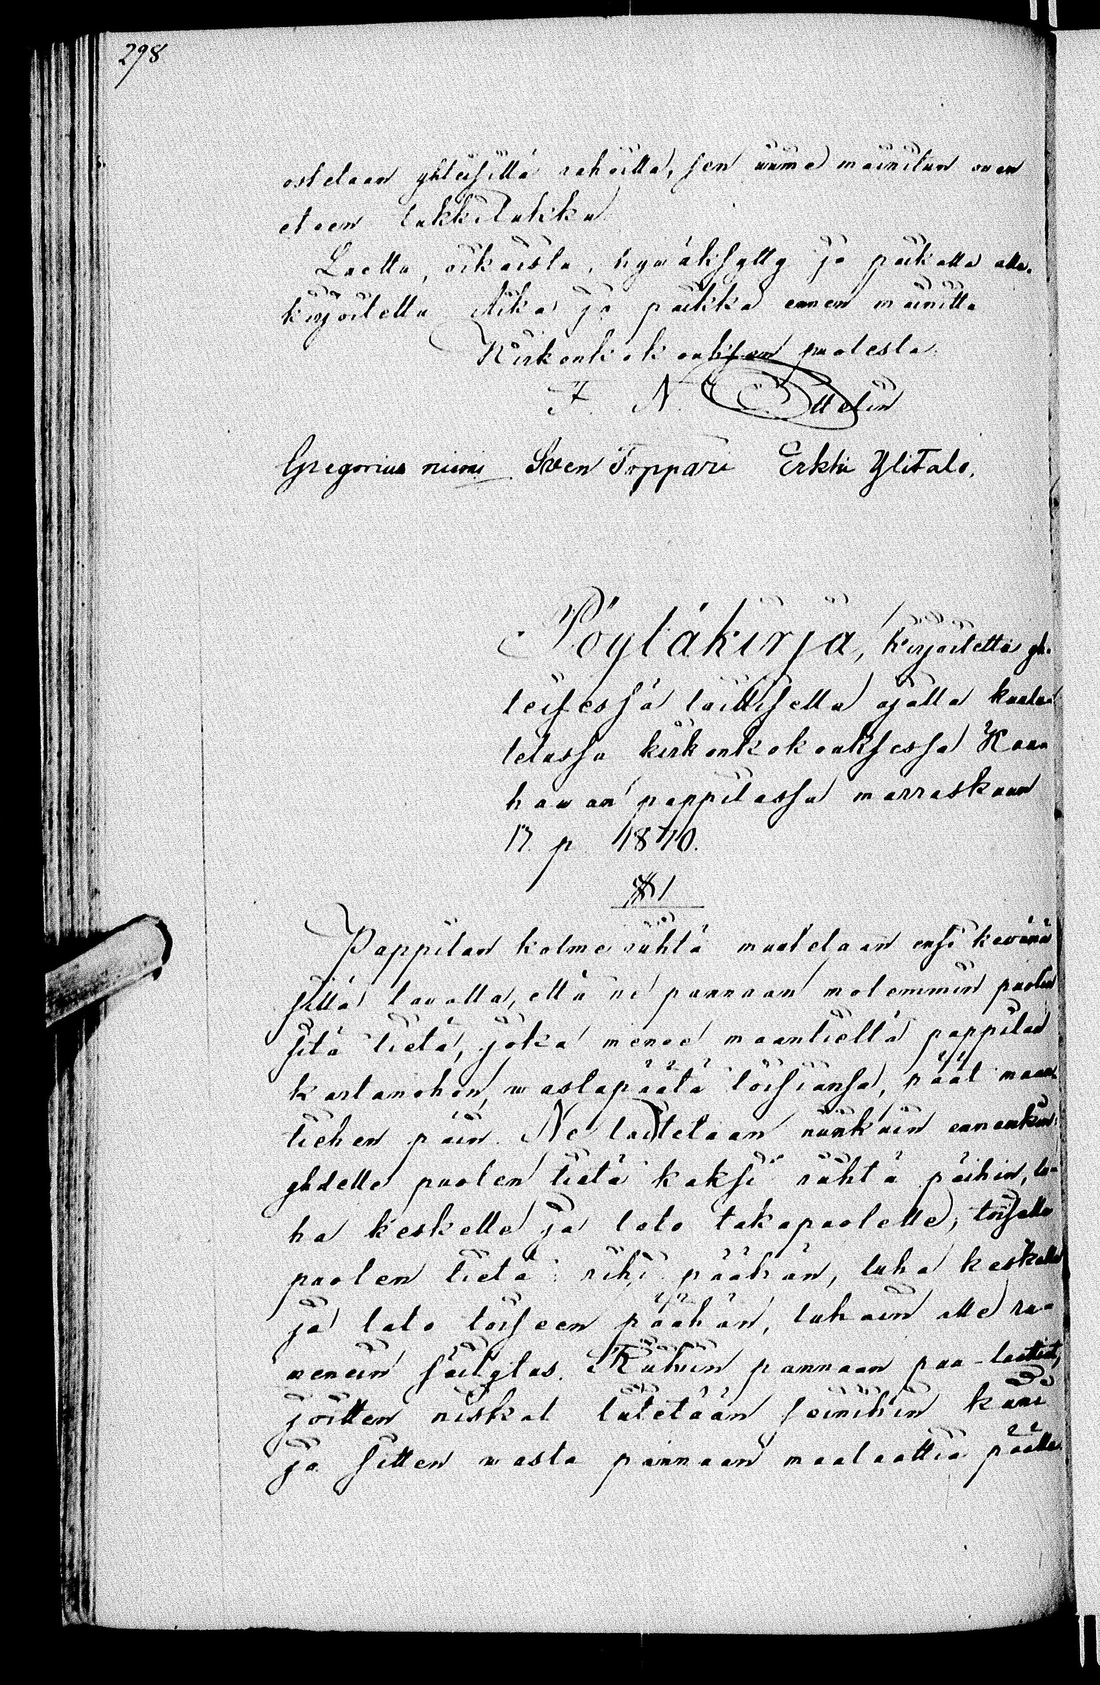 298
ostetaan yhteisillä rahoilla, sen mainitun oven
eteen lukkilukku
Luettu, oikaistu, hyväksytty ja paikalla alle-
kirjoitettu Aika ja paikka ennen mainittu
Kirkonkokouksen puolesta
F. N. Ottelin
Gregorius niemi Sven Toppari Erkki YliTalo.
Pöytäkirja, kirjoitettu yh-
teisessä laillisella ajalla kuulu-
tetussa kirkonkokouksessa Kau-
hawan pappilassa marraskuun
17 p 1870.
§ 1
Pappilan kolme riihtä muutetaan ensi kevännä
sillä tavalla, että ne pannaan molemmin puolin
sitä tietä, joka menee maantieltä pappilan
kartanohon, wastapäätä toisiansa, päät maan-
tiehen päin. Ne laitetaan niinkuin ennenkin:
yhdelle puolen tietä kaksi riihtä päihin, lu-
ha keskelle ja lato takapuolelle; toisella
puolen tietä riihi päähän, luha keskelle
ja lato toiseen päähän, luhain alle ra-
veneen säilytys. Riihiin pannaan puu-laattiat,
joitten niskat liitetään seinihin kiini
ja sitten wasta pannaan maalaattia päälle